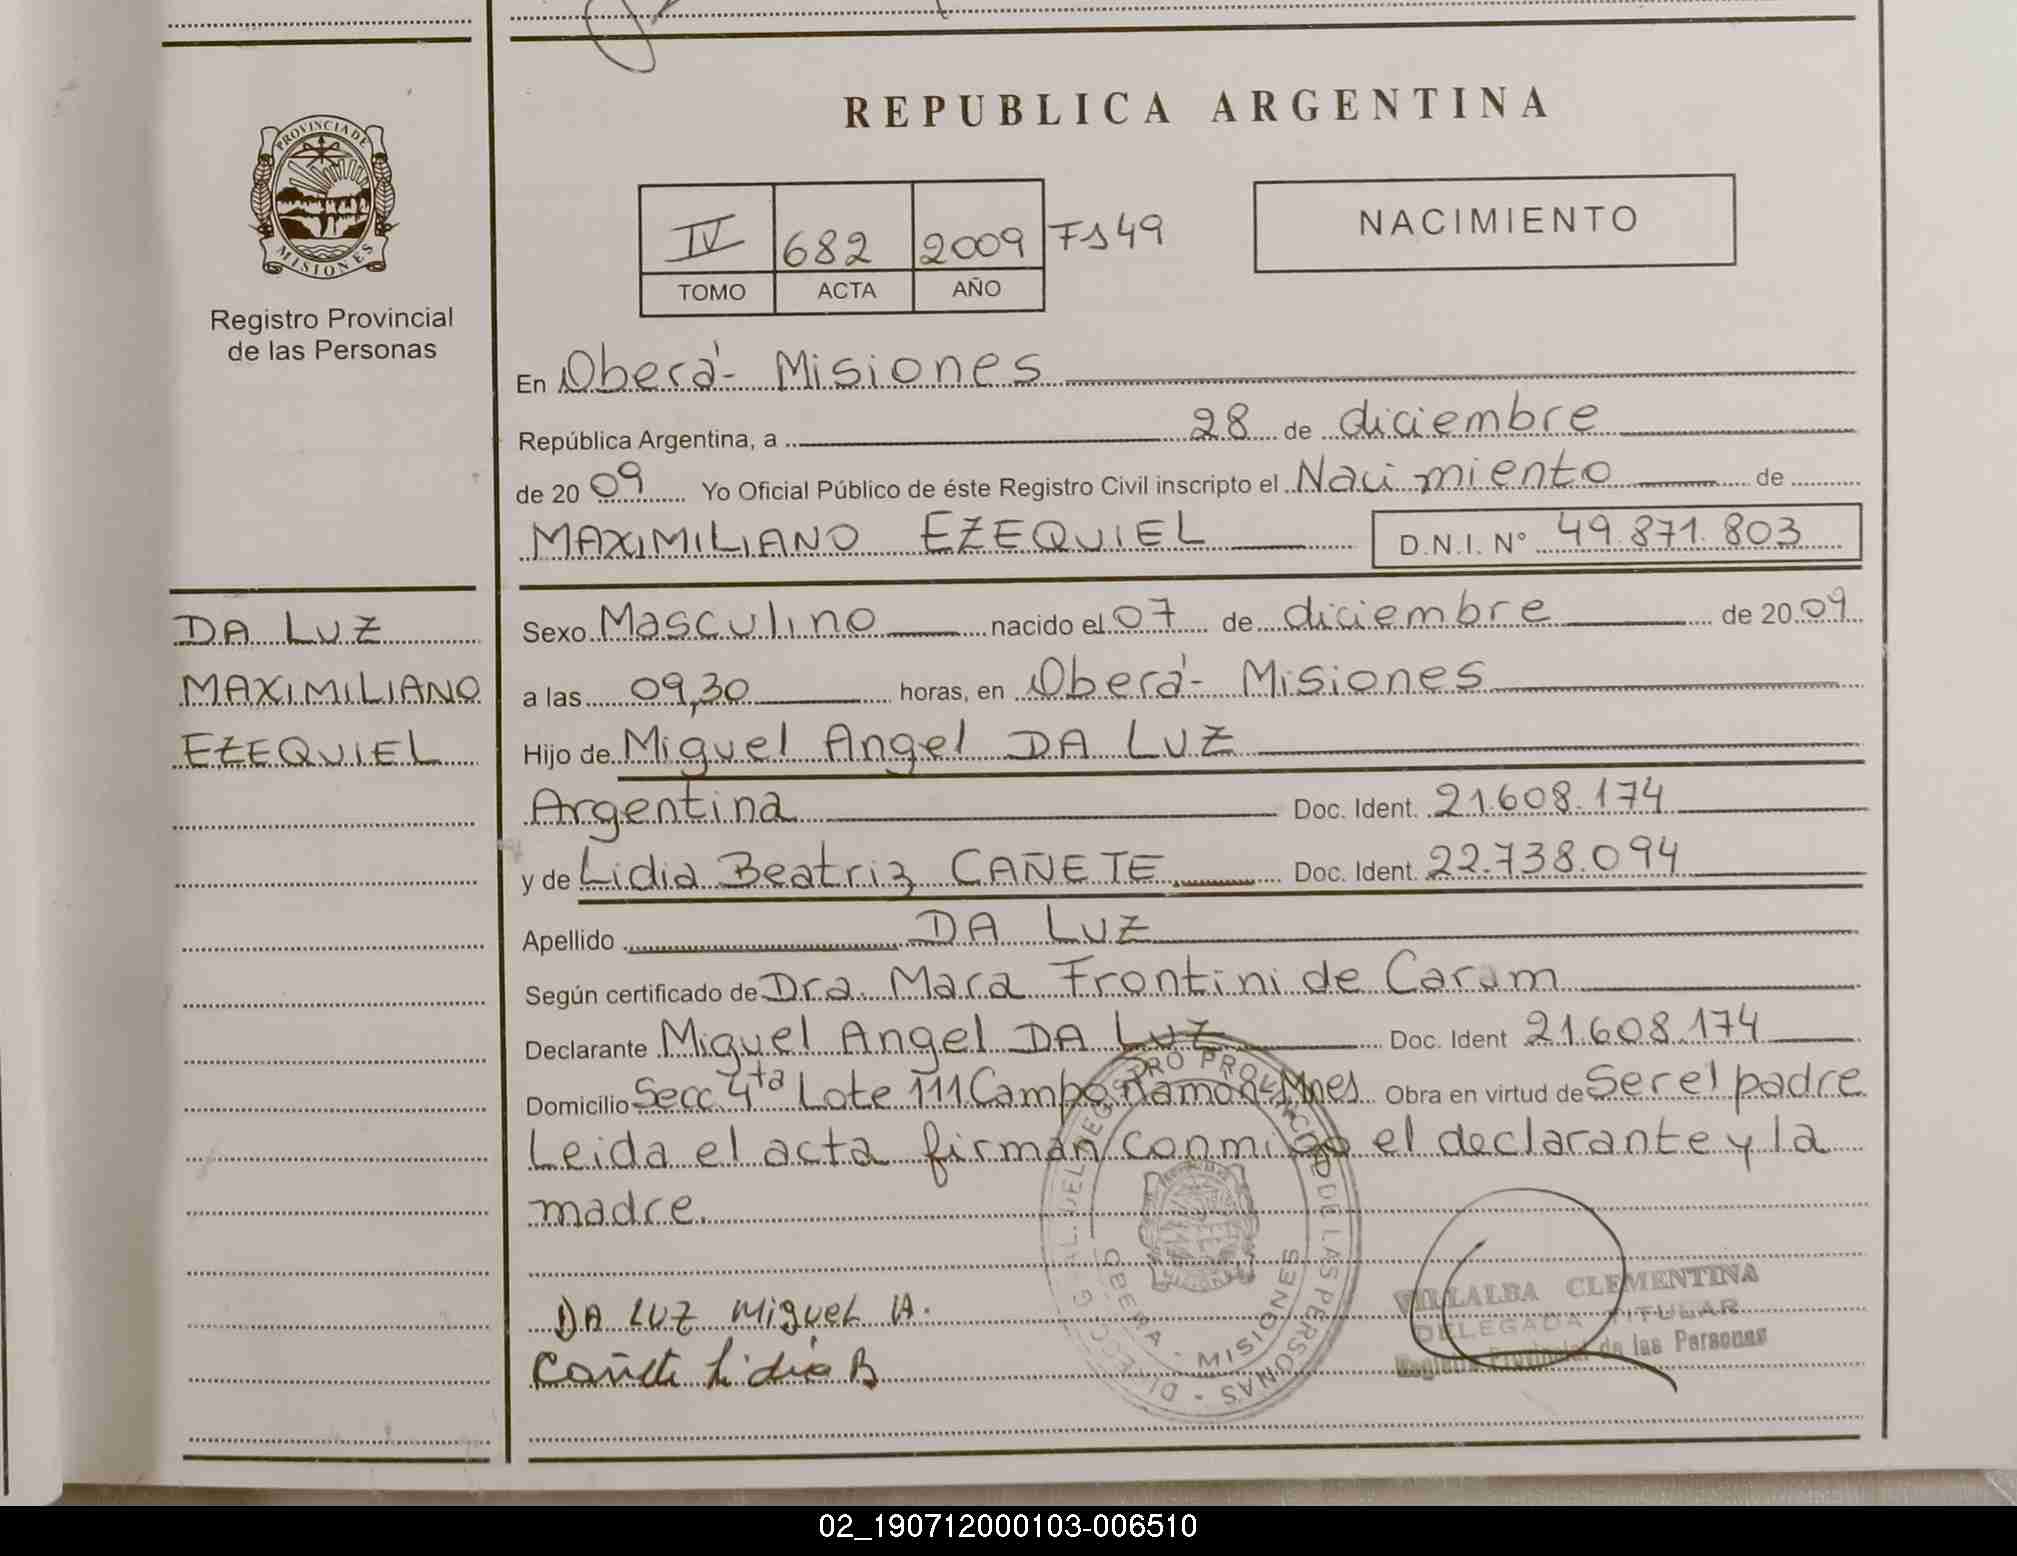 REPUBLICA ARGENTINA
PROVINCIA DE
MISIONES
Registro Provincial
de las Personas
IV 682 2009 Fs 49
TOMO ACTA AÑO
NACIMIENTO
En Oberá - Misiones
República Argentina, a 28 de diciembre
de 20 09 Yo Oficial Público de éste Registro Civil inscripto el Nacimiento de
MAXIMILIANO EZEQUIEL D.N.I. Nº 49.871.803
DA LUZ
MAXIMILIANO
EZEQUIEL
Sexo Masculino nacido el 07 de diciembre de 20 09
a las 09,30 horas, en Oberá - Misiones
Hijo de Miguel Angel DA LUZ
Argentina Doc. Ident. 21.608.174
y de Lidia Beatriz CAÑETE Doc. Ident. 22.738.094
Apellido DA LUZ
Según certificado de Dra. Mara Frontini de Caram
Declarante Miguel Angel DA LUZ Doc. Ident 21.608.174
Domicilio Secc 4ta Lote 111 Campo Ramón Mnes Obra en virtud de Ser el padre
Leida el acta firman conmigo el declarante y la
madre.
DA LUZ Miguel A.
Cañete Lidia B
REGISTRO PROVINCIAL DE LAS PERSONAS
OBERA - MISIONES
VILLALBA CLEMENTINA
DELEGADA TITULAR
Registro Provincial de las Personas
02_190712000103-006510